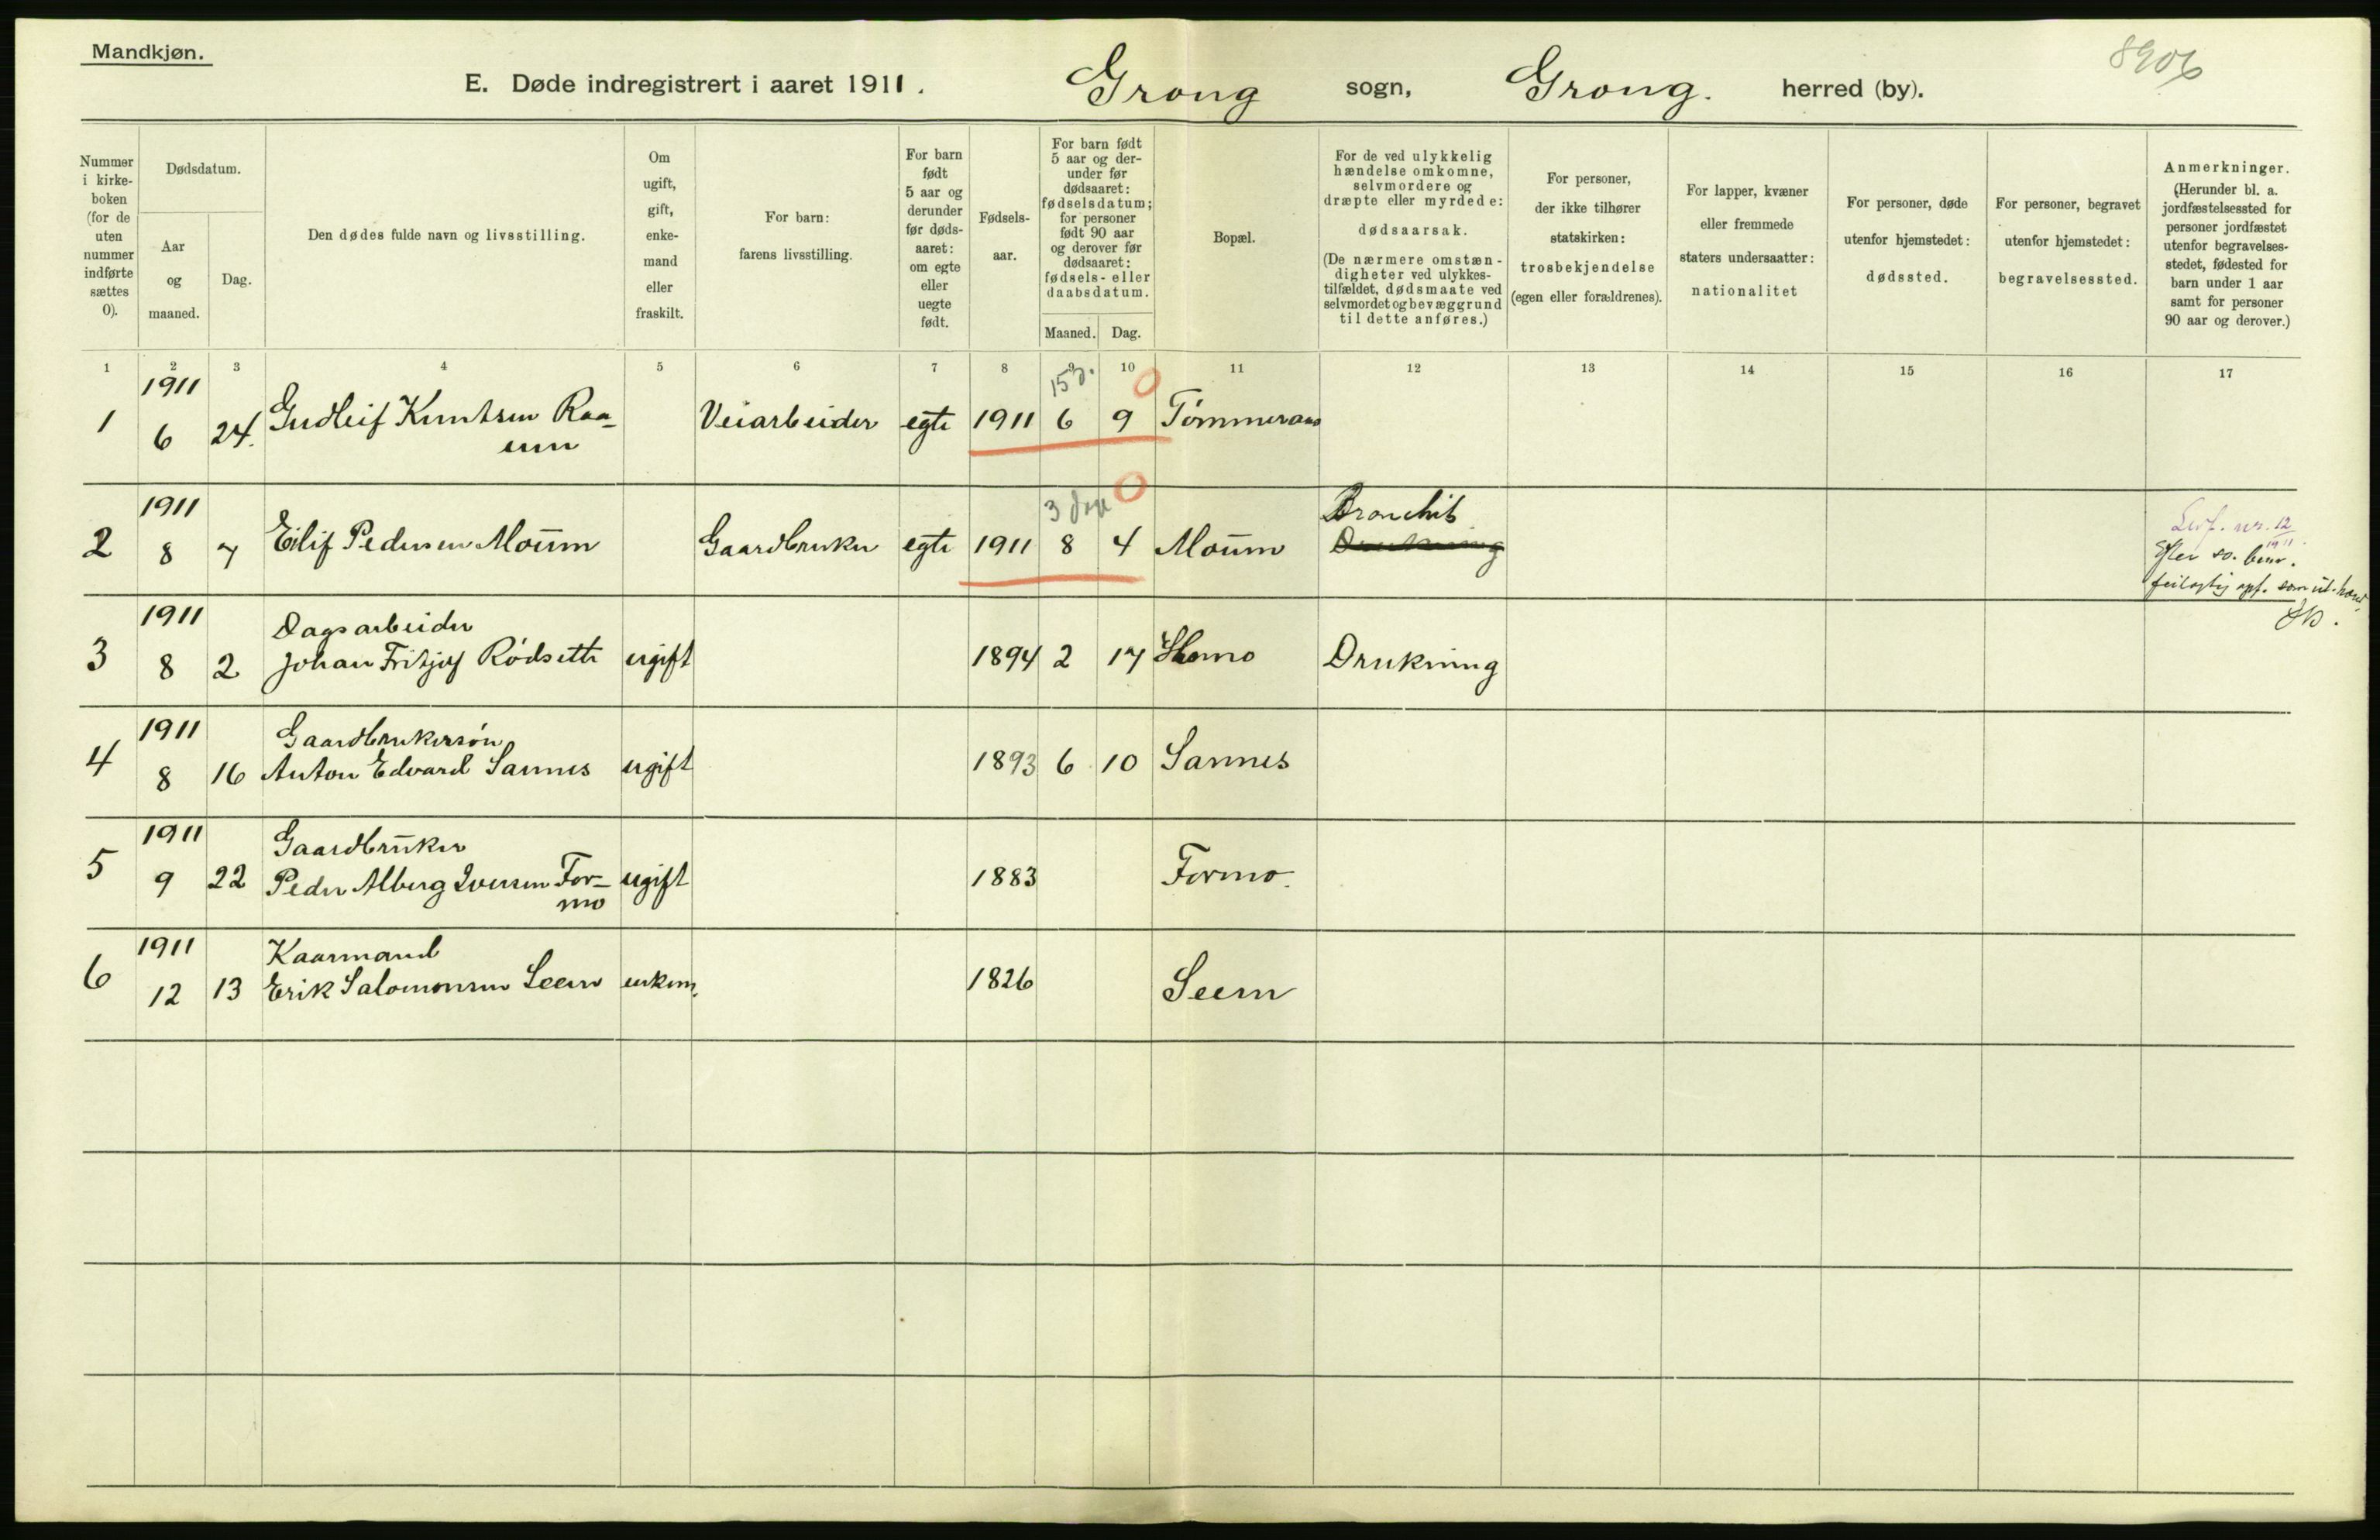 Mandkjøn.
8906
E. Døde indregistrert i aaret 1911. Grong sogn, Grong. herred (by).
Nummer i kirke- boken (for de uten nummer indførte sættes 0).
Dødsdatum.
Aar og maaned.
Dag.
Den dødes fulde navn og livsstilling.
Om ugift, gift, enke- mand eller fraskilt.
For barn: farens livsstilling.
For barn født 5 aar og derunder før døds- aaret: om egte eller uegte født.
Fødsels- aar.
For barn født 5 aar og der- under før dødsaaret: fødselsdatum; for personer født 90 aar og derover før dødsaaret: fødsels- eller daabsdatum.
Maaned. Dag.
Bopæl.
For de ved ulykkelig hændelse omkomne, selvmordere og dræpte eller myrdede: dødsaarsak. (De nærmere omstæn- digheter ved ulykkes- tilfældet, dødsmaate ved selvmordet og bevæggrund til dette anføres.)
For personer, der ikke tilhører statskirken: trosbekjendelse (egen eller forældrenes).
For lapper, kvæner eller fremmede staters undersaatter: nationalitet
For personer, døde utenfor hjemstedet: dødssted.
For personer, begravet utenfor hjemstedet: begravelsessted.
Anmerkninger. (Herunder bl. a. jordfæstelsessted for personer jordfæstet utenfor begravelses- stedet, fødested for barn under 1 aar samt for personer 90 aar og derover.)
1 2 3 4 5 6 7 8 9 10 11 12 13 14 15 16 17
1911 15 d. 0
1 6 24. Gudleif Knutsen Raa- Veiarbeider egte 1911 6 9 Tømmeraas
um
1911 3 dage 0 Bronchit
2 8 7 Eilif Pedersen Moum Gaardbruker egte 1911 8 4 Moum Drukning
nr. 12
1911
Efter so. bem.
feilagtig opf. som
1911 Dagsarbeider
3 8 2 Johan Fritjof Rødsette ugift 1894 2 17 Homo Drukning
1911 Gaardbrukersøn
4 8 16 Anton Edvard Sannes ugift 1893 6 10 Sannes
1911 Gaardbruker
5 9 22 Peder Alberg Iversen For- ugift 1883 Formo.
mo
1911 Kaarmand
6 12 13 Erik Salomonsen Seem enkem. 1826 Seem